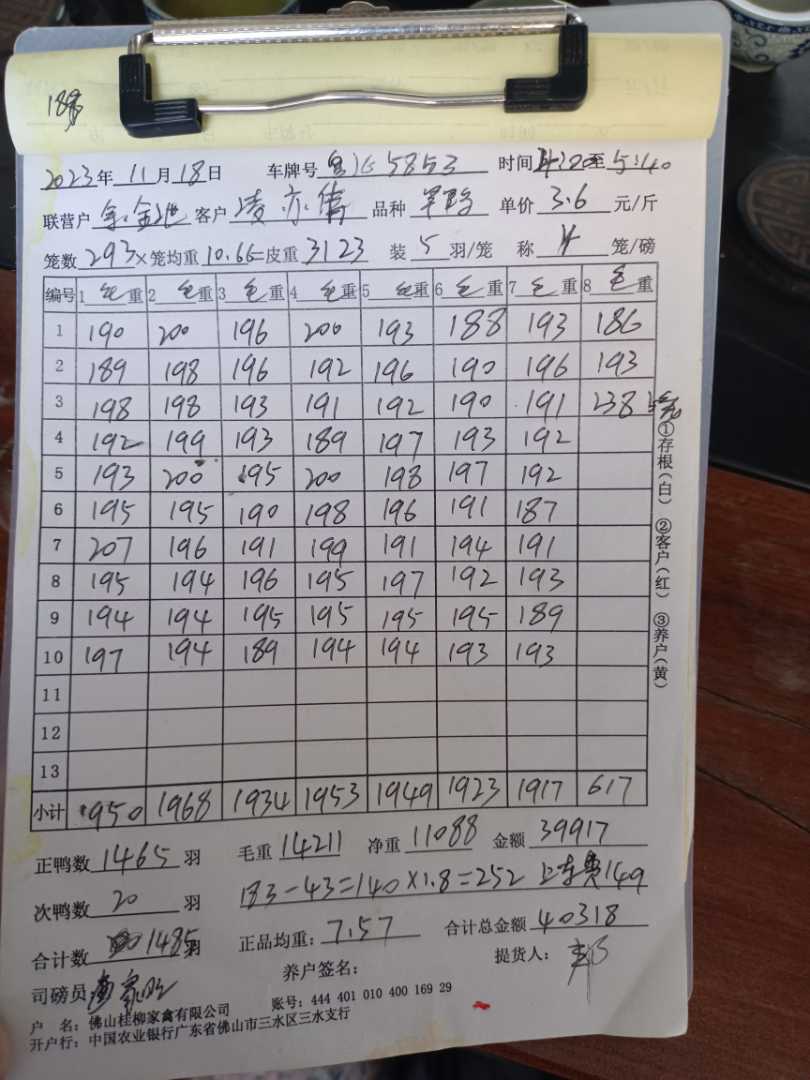 2023年 11月18日 车牌号 5853 时间 4:20至5:40
联营户 客户 凌亦伟 品种 单价 3.6 元/斤
笼数 293×笼均重 10.66=皮重 3123 装 5 羽/笼 称 4 笼/磅
编号 1 毛重 2 毛重 3 毛重 4 毛重 5 毛重 6 毛重 7 毛重 8 毛重
1 190 200 196 200 193 188 193 186
2 189 198 196 192 196 190 196 193
3 198 198 193 191 192 190 191 238
4 192 199 193 189 197 193 192
5 193 200 195 200 198 197 192
6 195 195 190 198 196 191 187
7 207 196 191 199 191 194 191
8 195 194 196 195 197 192 193
9 194 194 195 195 195 195 189
10 197 194 189 194 194 193 193
11
12
13
小计 1950 1968 1934 1953 1949 1923 1917 617
正鸭数 1465 羽 毛重 14211 净重 11088 金额 39917
次鸭数 20 羽 183-43=140×1.8=252 上车费149
合计数 1485羽 正品均重: 7.57 合计总金额 40318
司磅员 养户签名: 提货人:
户 名: 佛山桂柳家禽有限公司 账号: 444 401 010 400 169 29
开户行: 中国农业银行广东省佛山市三水区三水支行
①存根(白) ②客户(红) ③养户(黄)